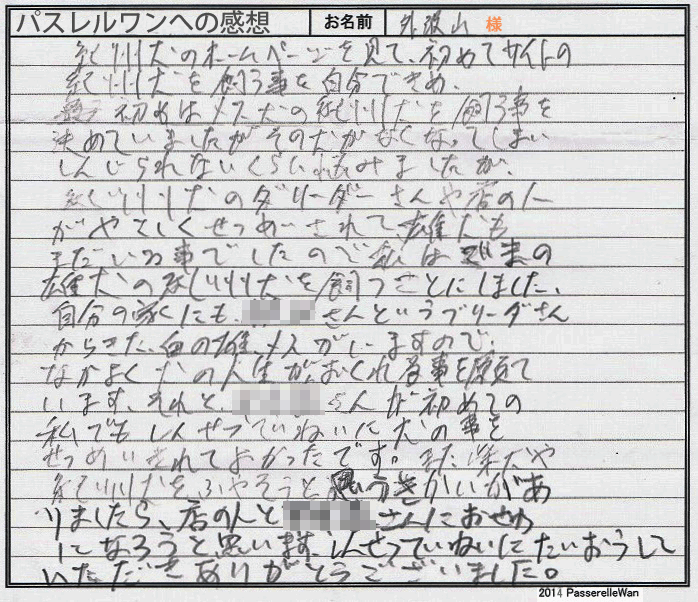 パスレルワンへの感想 お名前 外波山 様
紀州犬のホームページを見て、初めてサイトの
紀州犬を飼う事を自分できめ、
初めはメス犬の紀州犬を飼う事を
決めていましたがその犬がなくなってしまい
しんじられないくらい悩みましたが、
紀州犬のブリーダーさんや店の人
がやさしくせつめいされて雄犬も
まだいる事でしたので私は の
雄犬の紀州犬を飼うことにしました、
自分の家にも、 さんというブリーダさん
からきた、白の雄、メスがいますので、
なかよく犬の人生がおくれる事を願って
います、それと、 さんが初めての
私でもしんせつていねいに犬の事を
せつめいされてよかったです。また 犬や
紀州犬をふやそうと思うきかいがあ
りましたら、店の人と さんにおせわ
になろうと思います、しんせつていねいにたいおうして
いただきありがとうございました。
2014 PasserelleWan